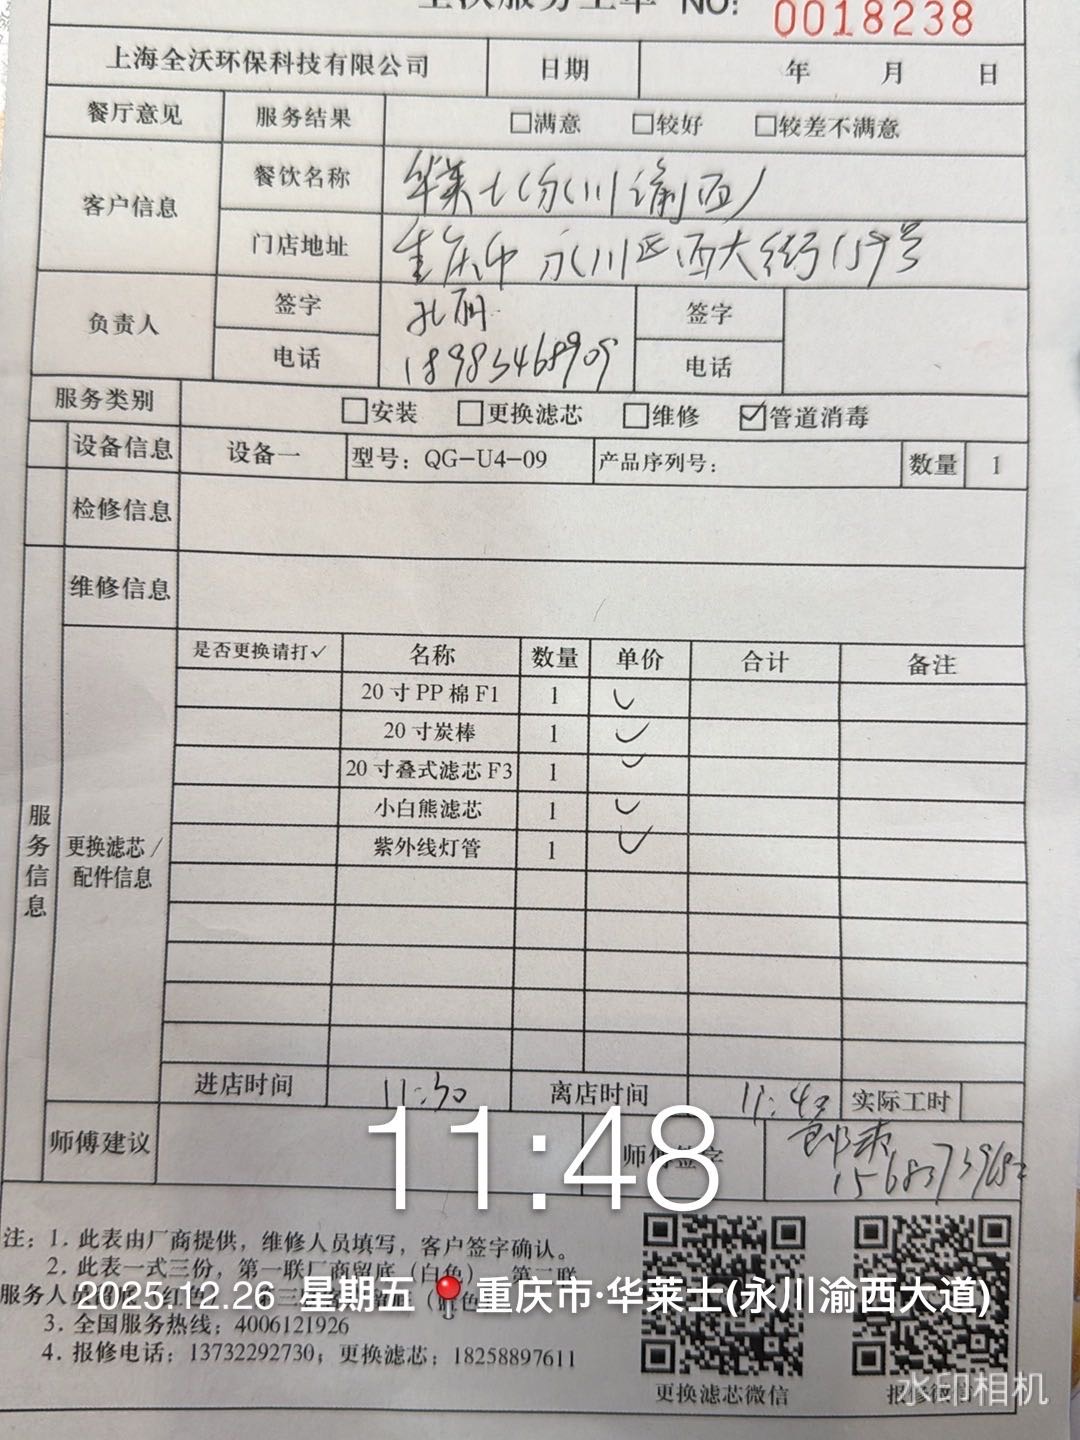 全沃服务工单 NO: 0018238
上海全沃环保科技有限公司 日期 年 月 日
餐厅意见 服务结果 □满意 □较好 □较差不满意
客户信息 餐饮名称 华莱士(永川渝西)
门店地址 重庆市永川区西大街159号
负责人 签字 孔丽 签字
电话 18983468909 电话
服务类别 □安装 □更换滤芯 □维修 ☑管道消毒
设备信息 设备一 型号：QG-U4-09 产品序列号： 数量 1
检修信息
维修信息
服务信息
更换滤芯/配件信息
是否更换请打✓ 名称 数量 单价 合计 备注
20寸PP棉F1 1 ✓
20寸炭棒 1 ✓
20寸叠式滤芯F3 1 ✓
小白熊滤芯 1 ✓
紫外线灯管 1 ✓
进店时间 11:30 离店时间 11:43 实际工时
师傅建议 师傅签字
11:48
注：1. 此表由厂商提供，维修人员填写，客户签字确认。
2. 此表一式三份，第一联厂商留底（白色） 第二联
服务人员
2025.12.26 星期五 重庆市·华莱士(永川渝西大道)
3. 全国服务热线：4006121926
4. 报修电话：13732292730；更换滤芯：18258897611
更换滤芯微信
水印相机